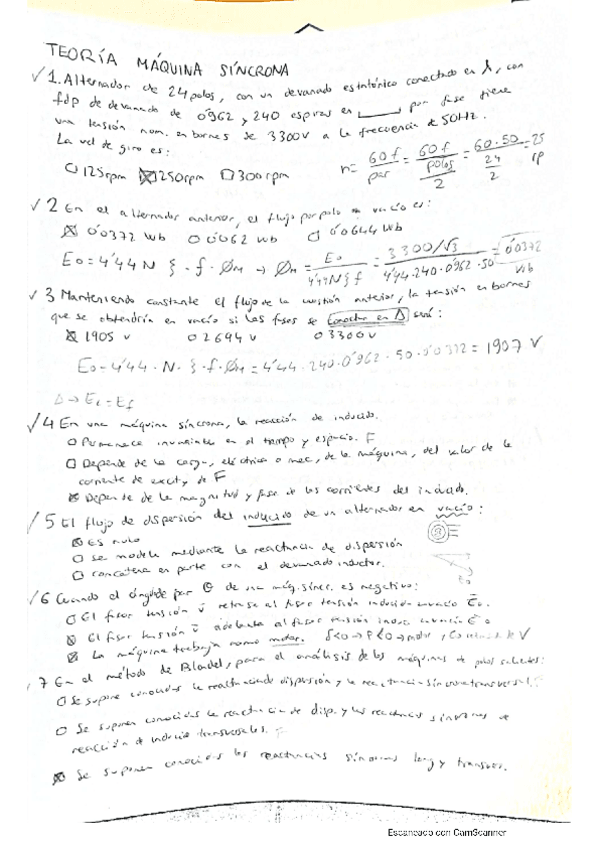 TEORÍA MÁQUINA SÍNCRONA
✓ 1. Alternador de 24 polos, con un devanado estatórico conectado en Y, con
fdp de devanado de 0'962 y 240 espiras en ____ por fase tiene
una tensión nom. en bornes de 3300V a la frecuencia de 50Hz.
La vel de giro es:
□ 125rpm ☒ 250rpm □ 300rpm
n = 60f/par = 60f/(polos/2) = 60·50/(24/2) =
✓ 2 En el alternador anterior, el flujo por polo en vacío es:
☒ 0'0372 Wb ○ 0'062 Wb □ 0'0644 Wb
E0 = 4'44 N ξ · f · Øm → Øm = E0/(4'44 N ξ f) = (3300/√3)/(4'44·240·0'962·50) = 0'0372 Wb
✓ 3 Manteniendo constante el flujo de la cuestión anterior, la tensión en bornes
que se obtendría en vacío si las fases se conectan en Δ será:
☒ 1905 v ○ 2694 v ○ 3300 v
E0 = 4'44 · N · ξ · f · Øm = 4'44 · 240 · 0'962 · 50 · 0'0372 = 1907 V
Δ → EL = Ef
✓ 4 En una máquina síncrona, la reacción de inducido.
□ Permanece invariable en el tiempo y espacio. F
□ Depende de la carga, eléctrica o mec, de la máquina, del valor de la
corriente de excit y de F
☒ Depende de la magnitud y fase de las corrientes del inducido.
/ 5 El flujo de dispersión del inducido de un alternador en vacío:
☒ Es nulo
□ Se modela mediante la reactancia de dispersión
□ concatena en parte con el devanado inductor.
✓ 6 Cuando el ángulo par θ de una máq. síncr. es negativo:
□ El fasor tensión v retrasa al fasor tensión inducida en vacío E0.
☒ El fasor tensión v adelanta al fasor tensión induc en vacío E0
☒ La máquina trabaja como motor. δ<0 → P<0 → motor,
, 7 En el método de Blondel, para el análisis de las máquinas de polos salientes:
□ Se supone conocidas la reactancia de dispersión y la reactancia síncrona transversal.
□ Se suponen conocidas la reactancia de disp. y las reactancias síncronas de
reacción de inducido transversales.
☒ Se suponen conocidas las reactancias síncronas long y transver.
Escaneado con CamScanner